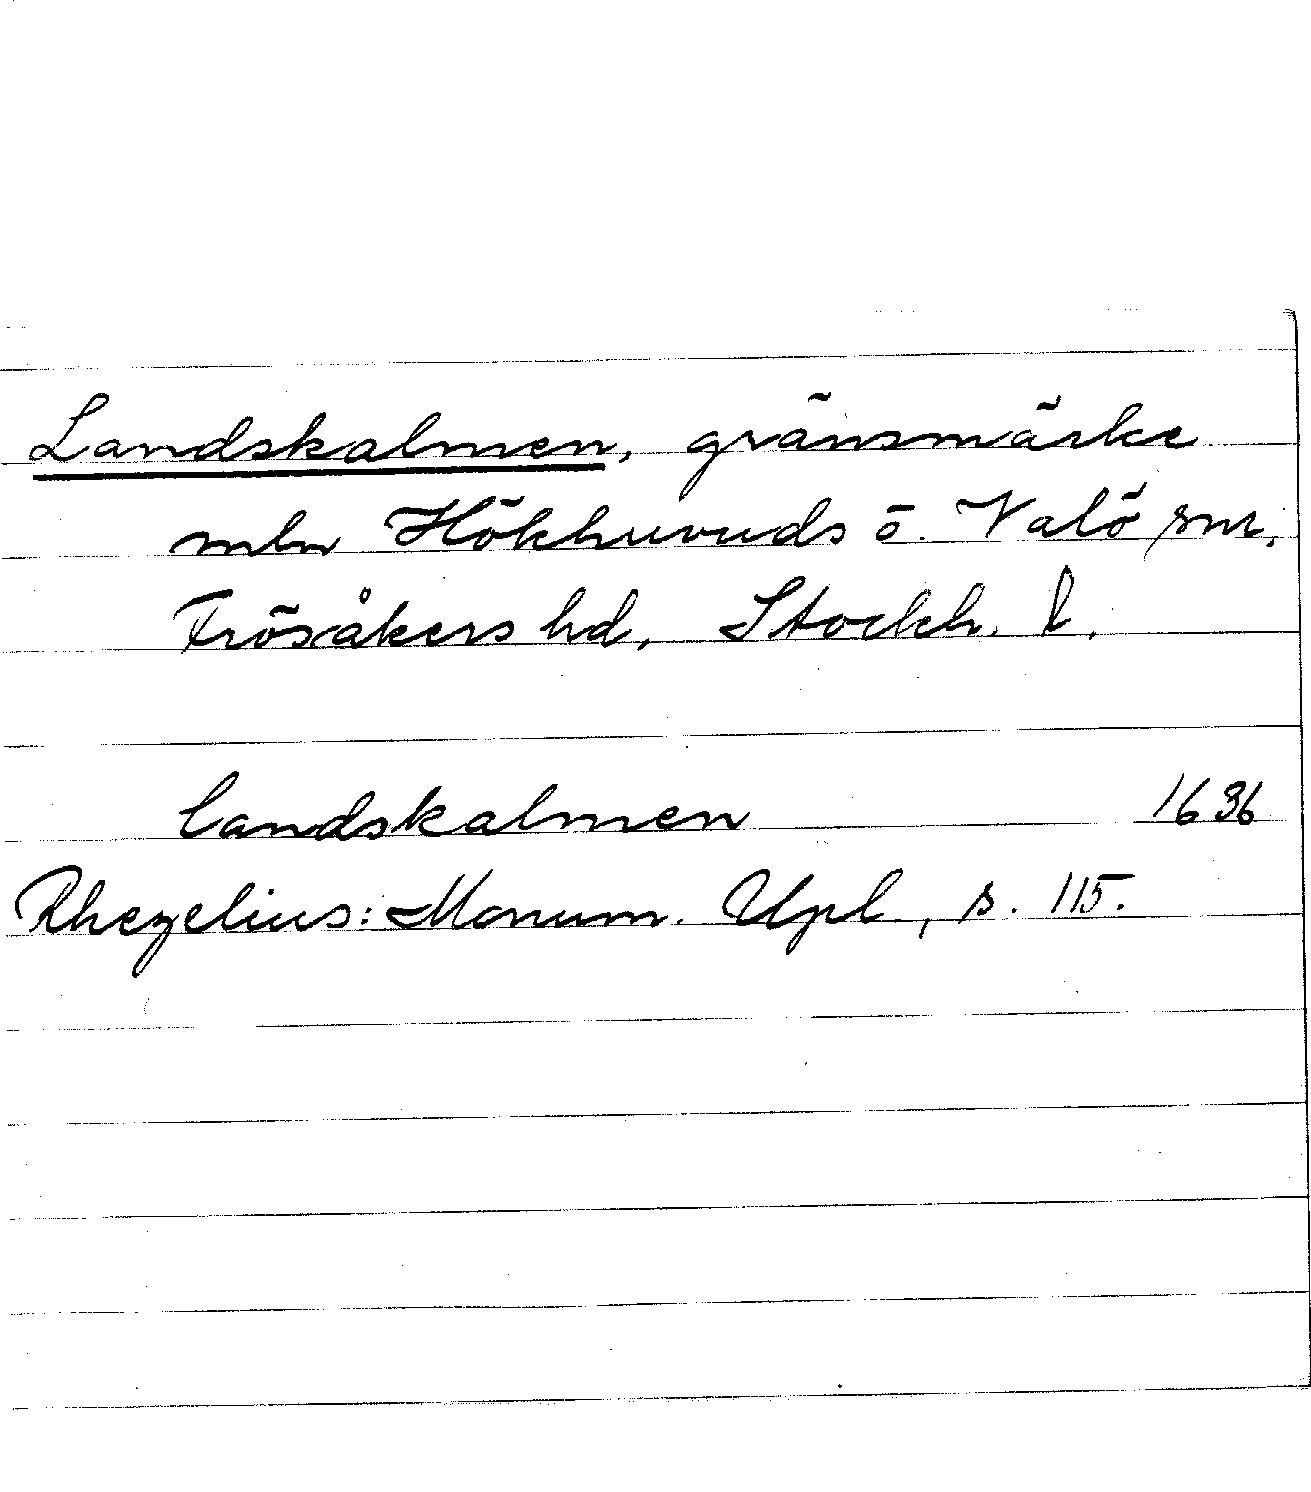 Landskalmen, gränsmärke
mln Hökhuvuds o. Valö snr,
Frösåkers hd, Stockh. l.
landskalmen 1636
Rhezelius: Monum. Upl, s. 115.